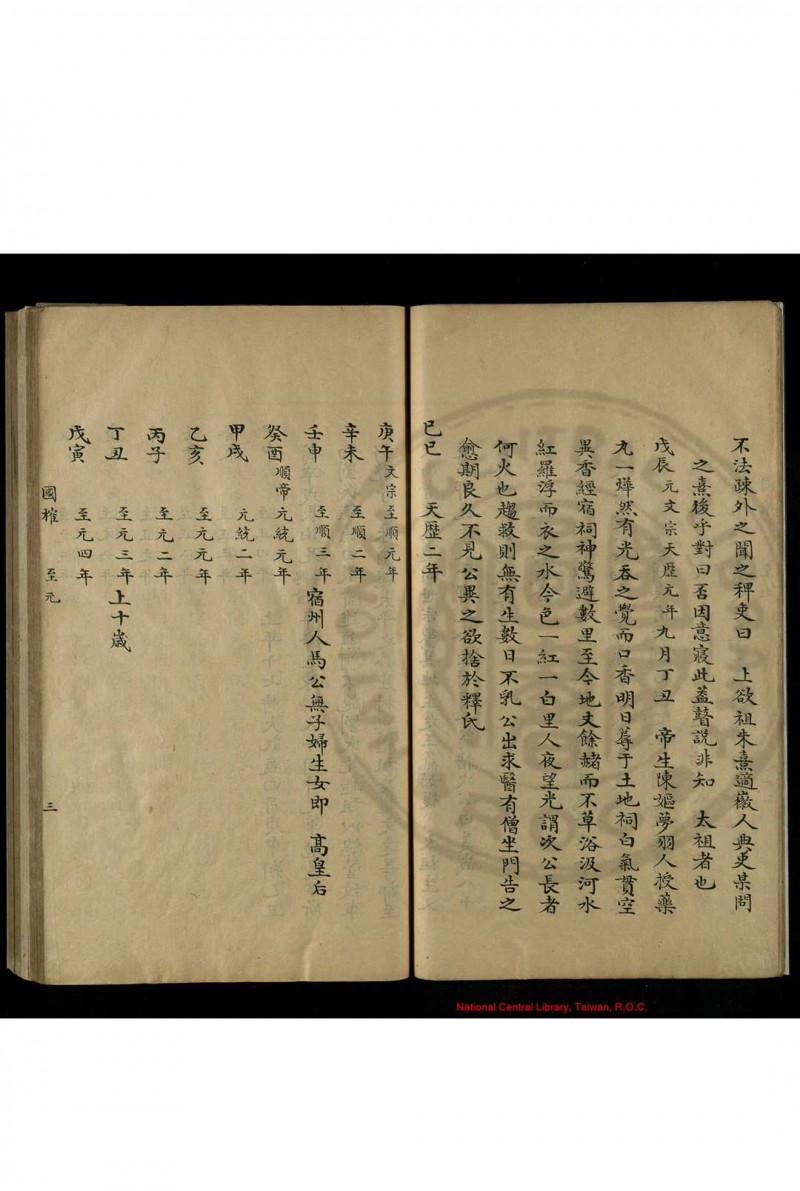 不法疎外之聞之稗吏曰　上欲祖朱熹適徽人典吏某問
之熹後乎對曰否因意寢此蓋瞽説非知　太祖者也
戊辰元文宗天歷元年九月丁丑　帝生陳嫗夢羽人授藥
九一燁然有光吞之覺而口香明日蓐于土地祠白氣貫空
異香經宿祠神驚避數里至今地丈餘赭而不草浴汲河水
紅羅浮而衣之水今色一紅一白里人夜望光謂次公長者
何火也趨救則無有生數日不乳公出求醫有僧坐門告之
愈期良久不見公異之欲捨於釋氏
己巳　天歷二年
庚午文宗至順元年
辛未　至順二年
壬申　至順三年宿州人馬公無子婦生女即　高皇后
癸酉順帝元統元年
甲戌　元統二年
乙亥　至元元年
丙子　至元二年
丁丑　至元三年上十歲
戊寅　至元四年
國榷　至元　三
National Central Library, Taiwan, R.O.C.